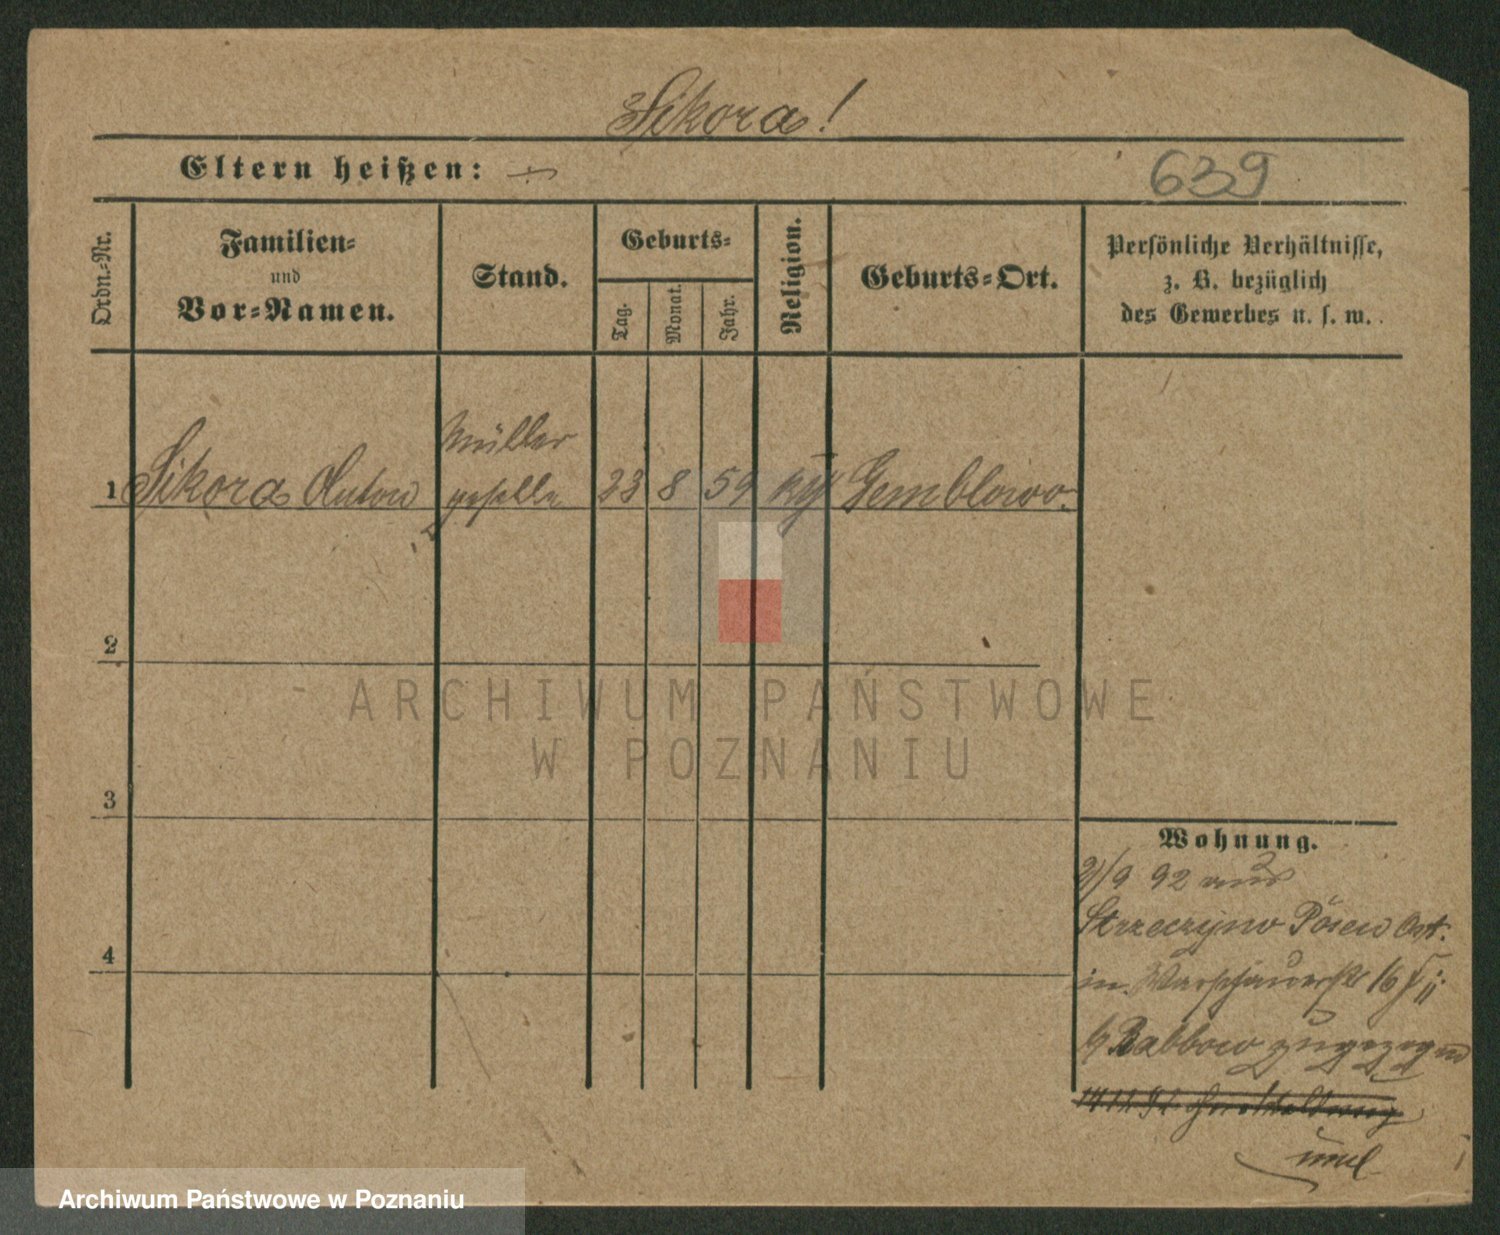 Sikora!
Eltern heißen: 639
Ordn.-Nr.
Familien-
und
Vor-Namen.
Stand.
Geburts-
Tag.
Monat.
Jahr.
Religion.
Geburts-Ort.
Persönliche Verhältnisse,
z. B. bezüglich
des Gewerbes u. s. w.
Müller
1 Sikora Anton geselle 23 8 59 kth Gemblowo.
2
3
4
Wohnung.
2/9 92 aus
Strzeczyno Posen Ost.
in Warschauerstr 16
Babbow zugezogen
ARCHIWUM PAŃSTWOWE
W POZNANIU
Archiwum Państwowe w Poznaniu